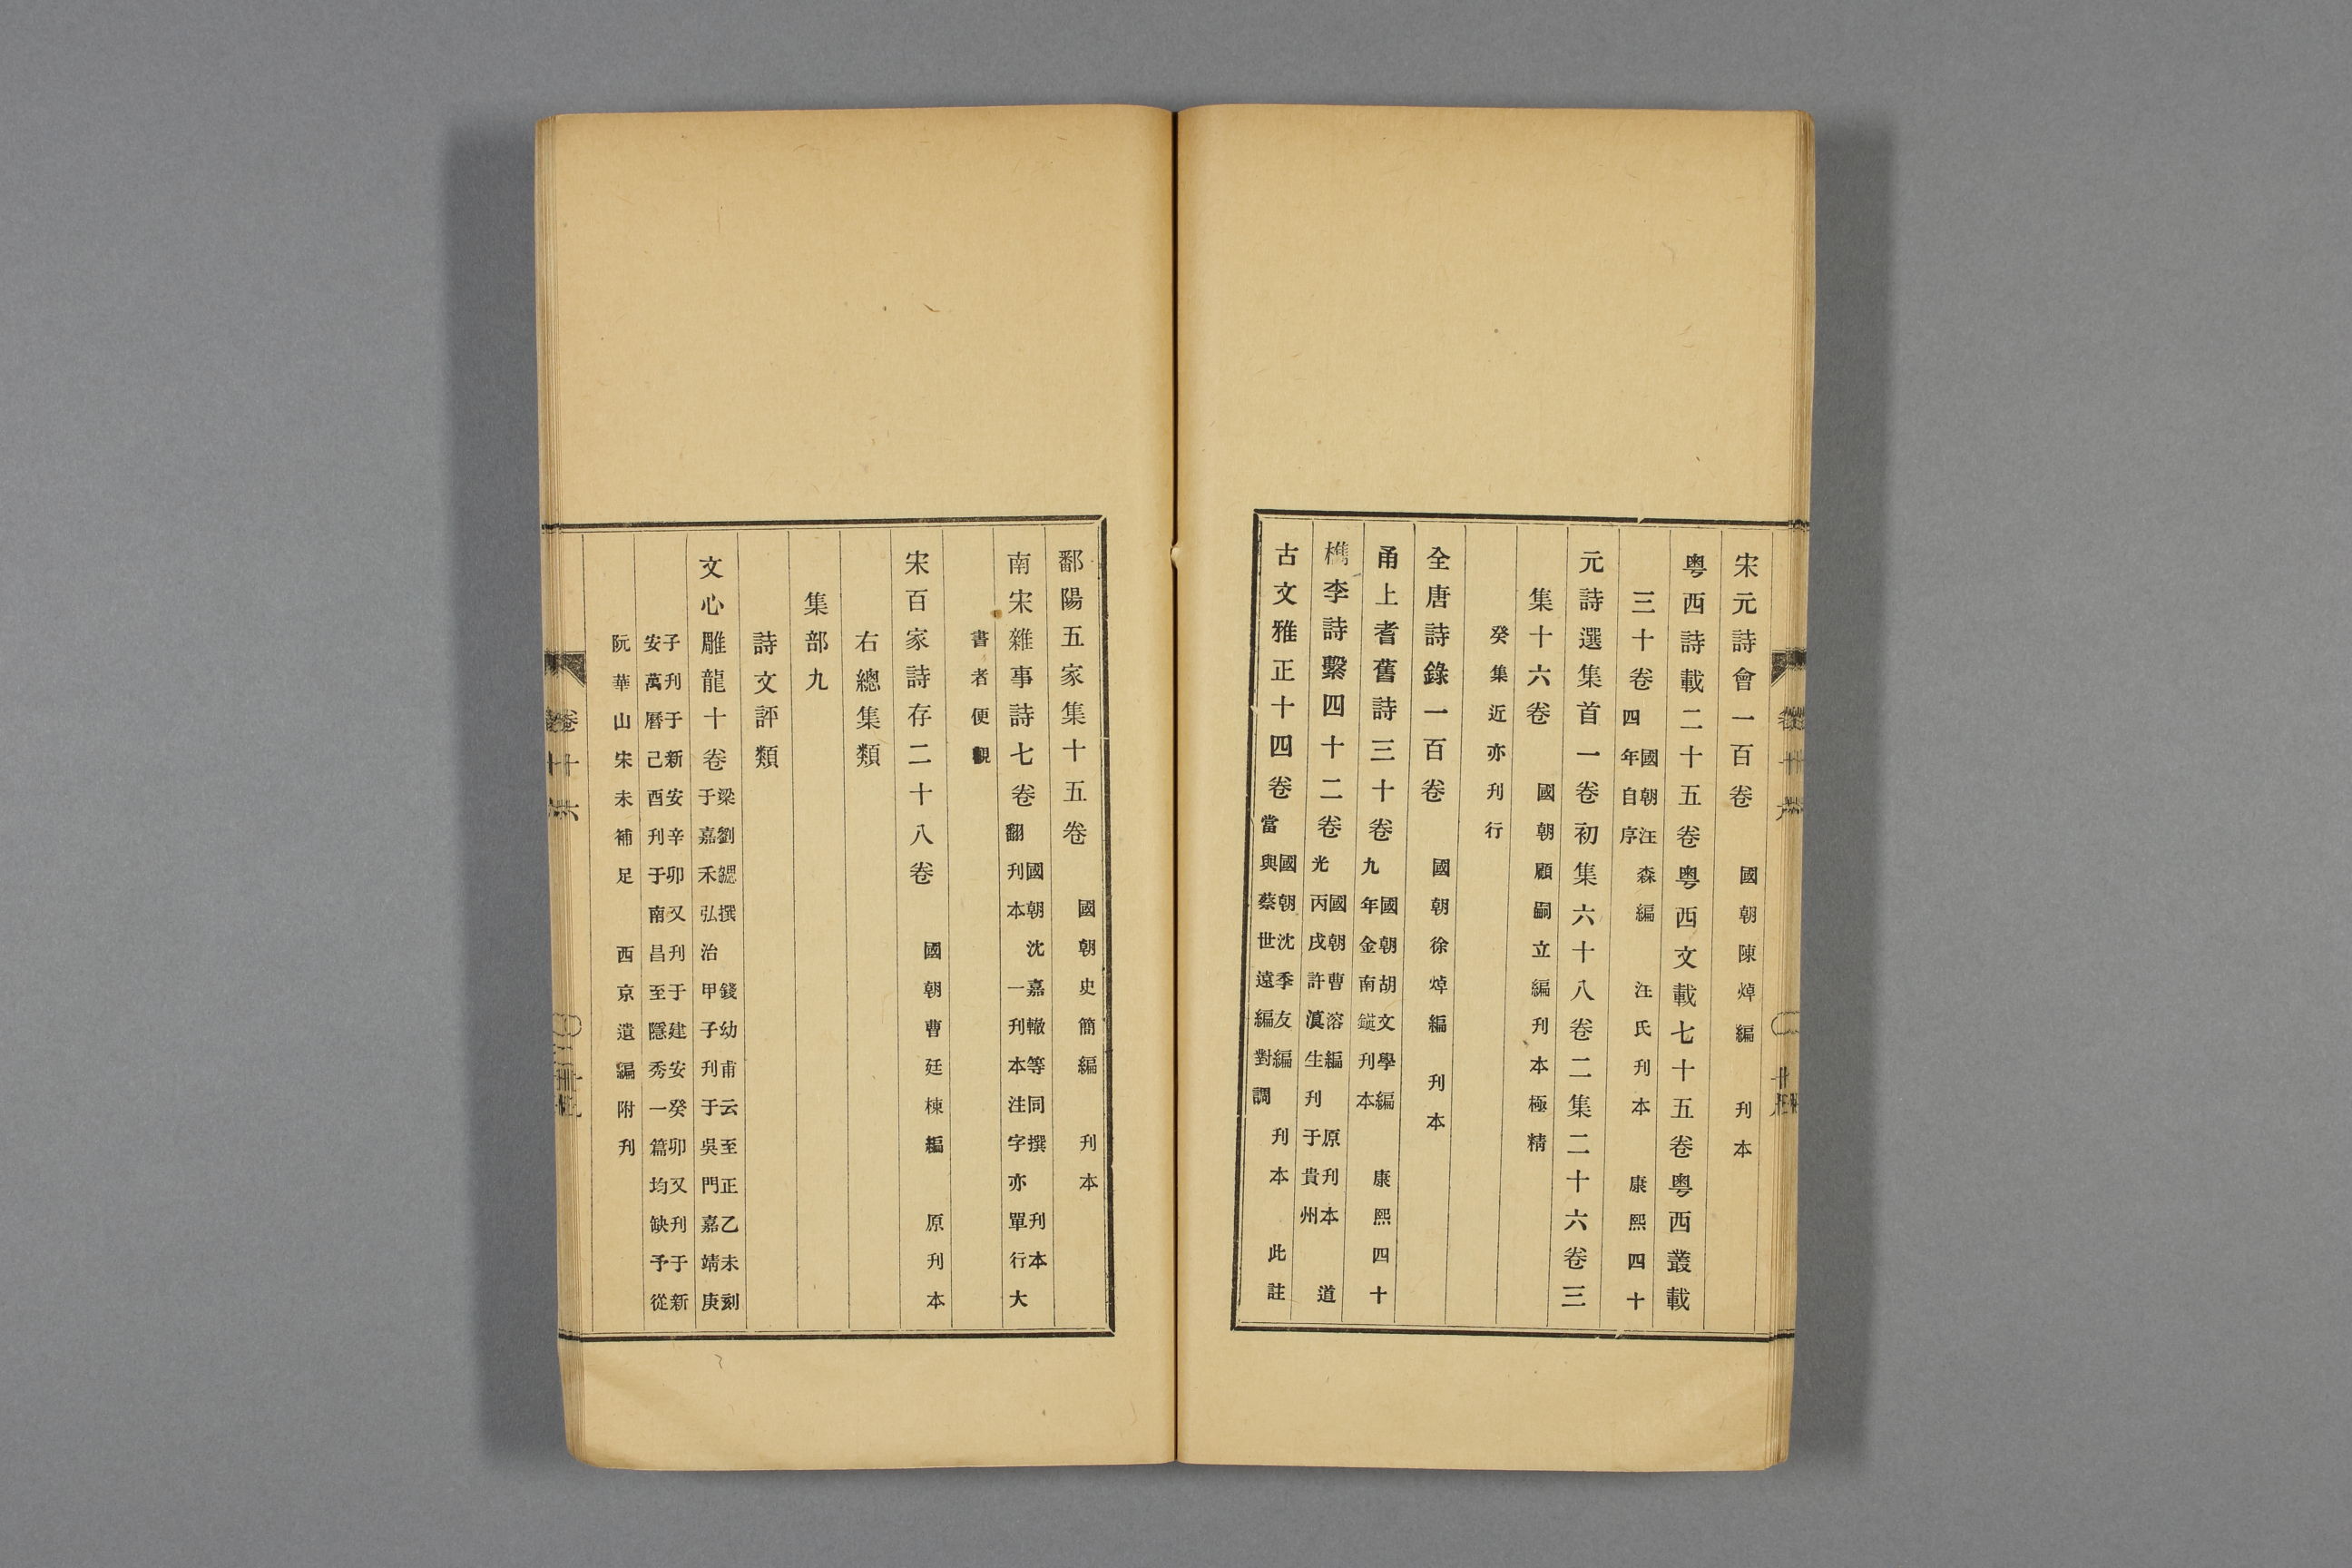 宋元詩會一百卷 國朝陳焯編 刊本
粵西詩載二十五卷粵西文載七十五卷粵西叢載
三十卷 國朝汪森編 汪氏刊本 康熙四十
四年自序
元詩選集首一卷初集六十八卷二集二十六卷三
集十六卷 國朝顧嗣立編刊本極精
癸集近亦刊行
全唐詩錄一百卷 國朝徐焯編 刊本
甬上耆舊詩三十卷 國朝胡文學編 康熙四十
九年金南鍈刊本
檇李詩繫四十二卷 國朝曹溶編 原刊本 道
光丙戌許滇生刊于貴州
古文雅正十四卷 國朝沈季友編 刊本 此註
當與蔡世遠編對調
鄱陽五家集十五卷 國朝史簡編 刊本
南宋雜事詩七卷 國朝沈嘉轍等同撰 刊本
翻刊本 一刊本注字亦單行大
書者便觀
宋百家詩存二十八卷 國朝曹廷棟編 原刊本
右總集類
集部九
詩文評類
文心雕龍十卷 梁劉勰撰 錢幼甫云至正乙未刻
于嘉禾弘治甲子刊于吳門嘉靖庚
子刊于新安辛卯又刊于建安癸卯又刊于新
安萬曆己酉刊于南昌至隱秀一篇均缺予從
阮華山宋未補足 西京遺編附刊
卷十六